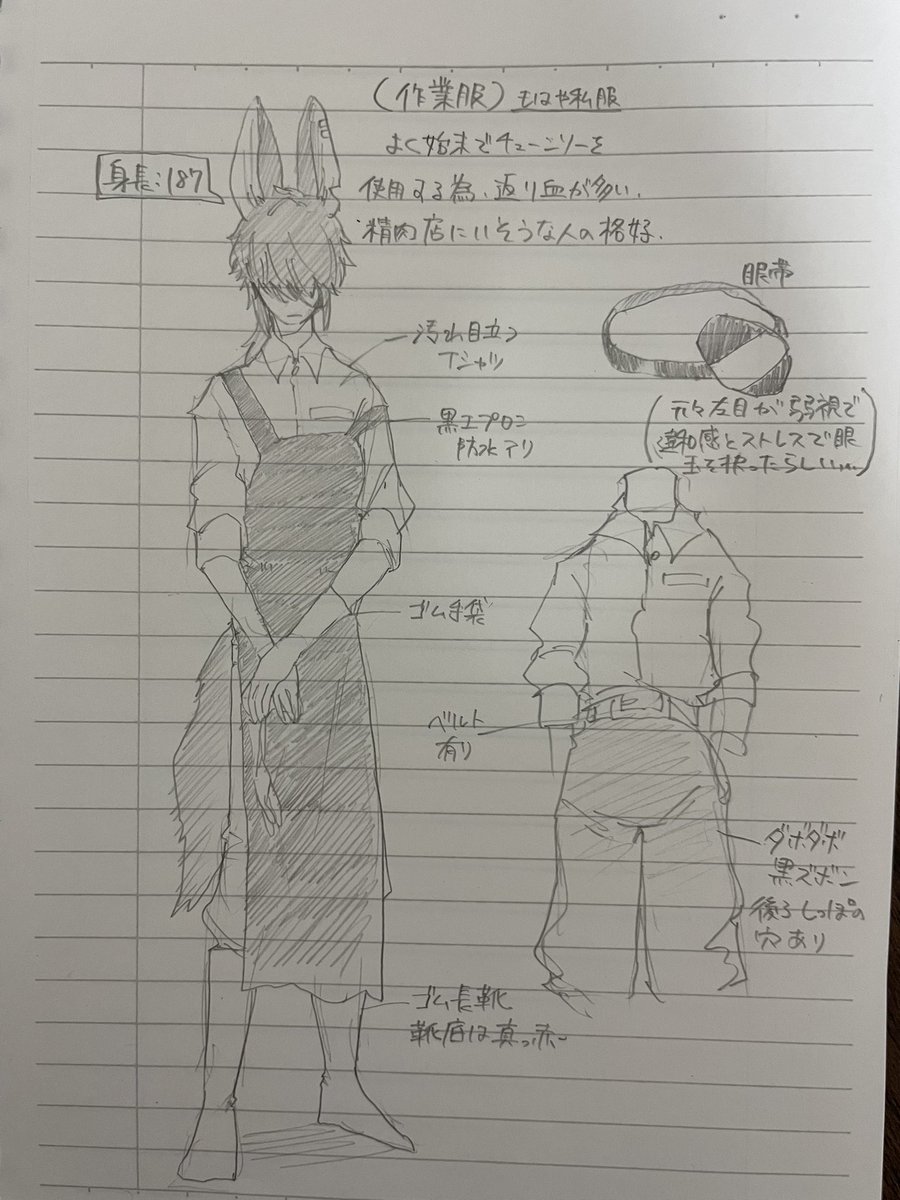 (作業服) もはや私服
よく始末でチェーンソーを
使用する為、返り血が多い.
精肉店にいそうな人の格好.
身長:187
眼帯
汚れ目立つ
Tシャツ
黒エプロン
防水アリ
(元々左目が弱視で
違和感とストレスで眼
玉を抉ったらしい...)
ゴム手袋
ベルト
有り
ダボダボ
黒ズボン
後ろしっぽの
穴あり
ゴム長靴
靴底は真っ赤